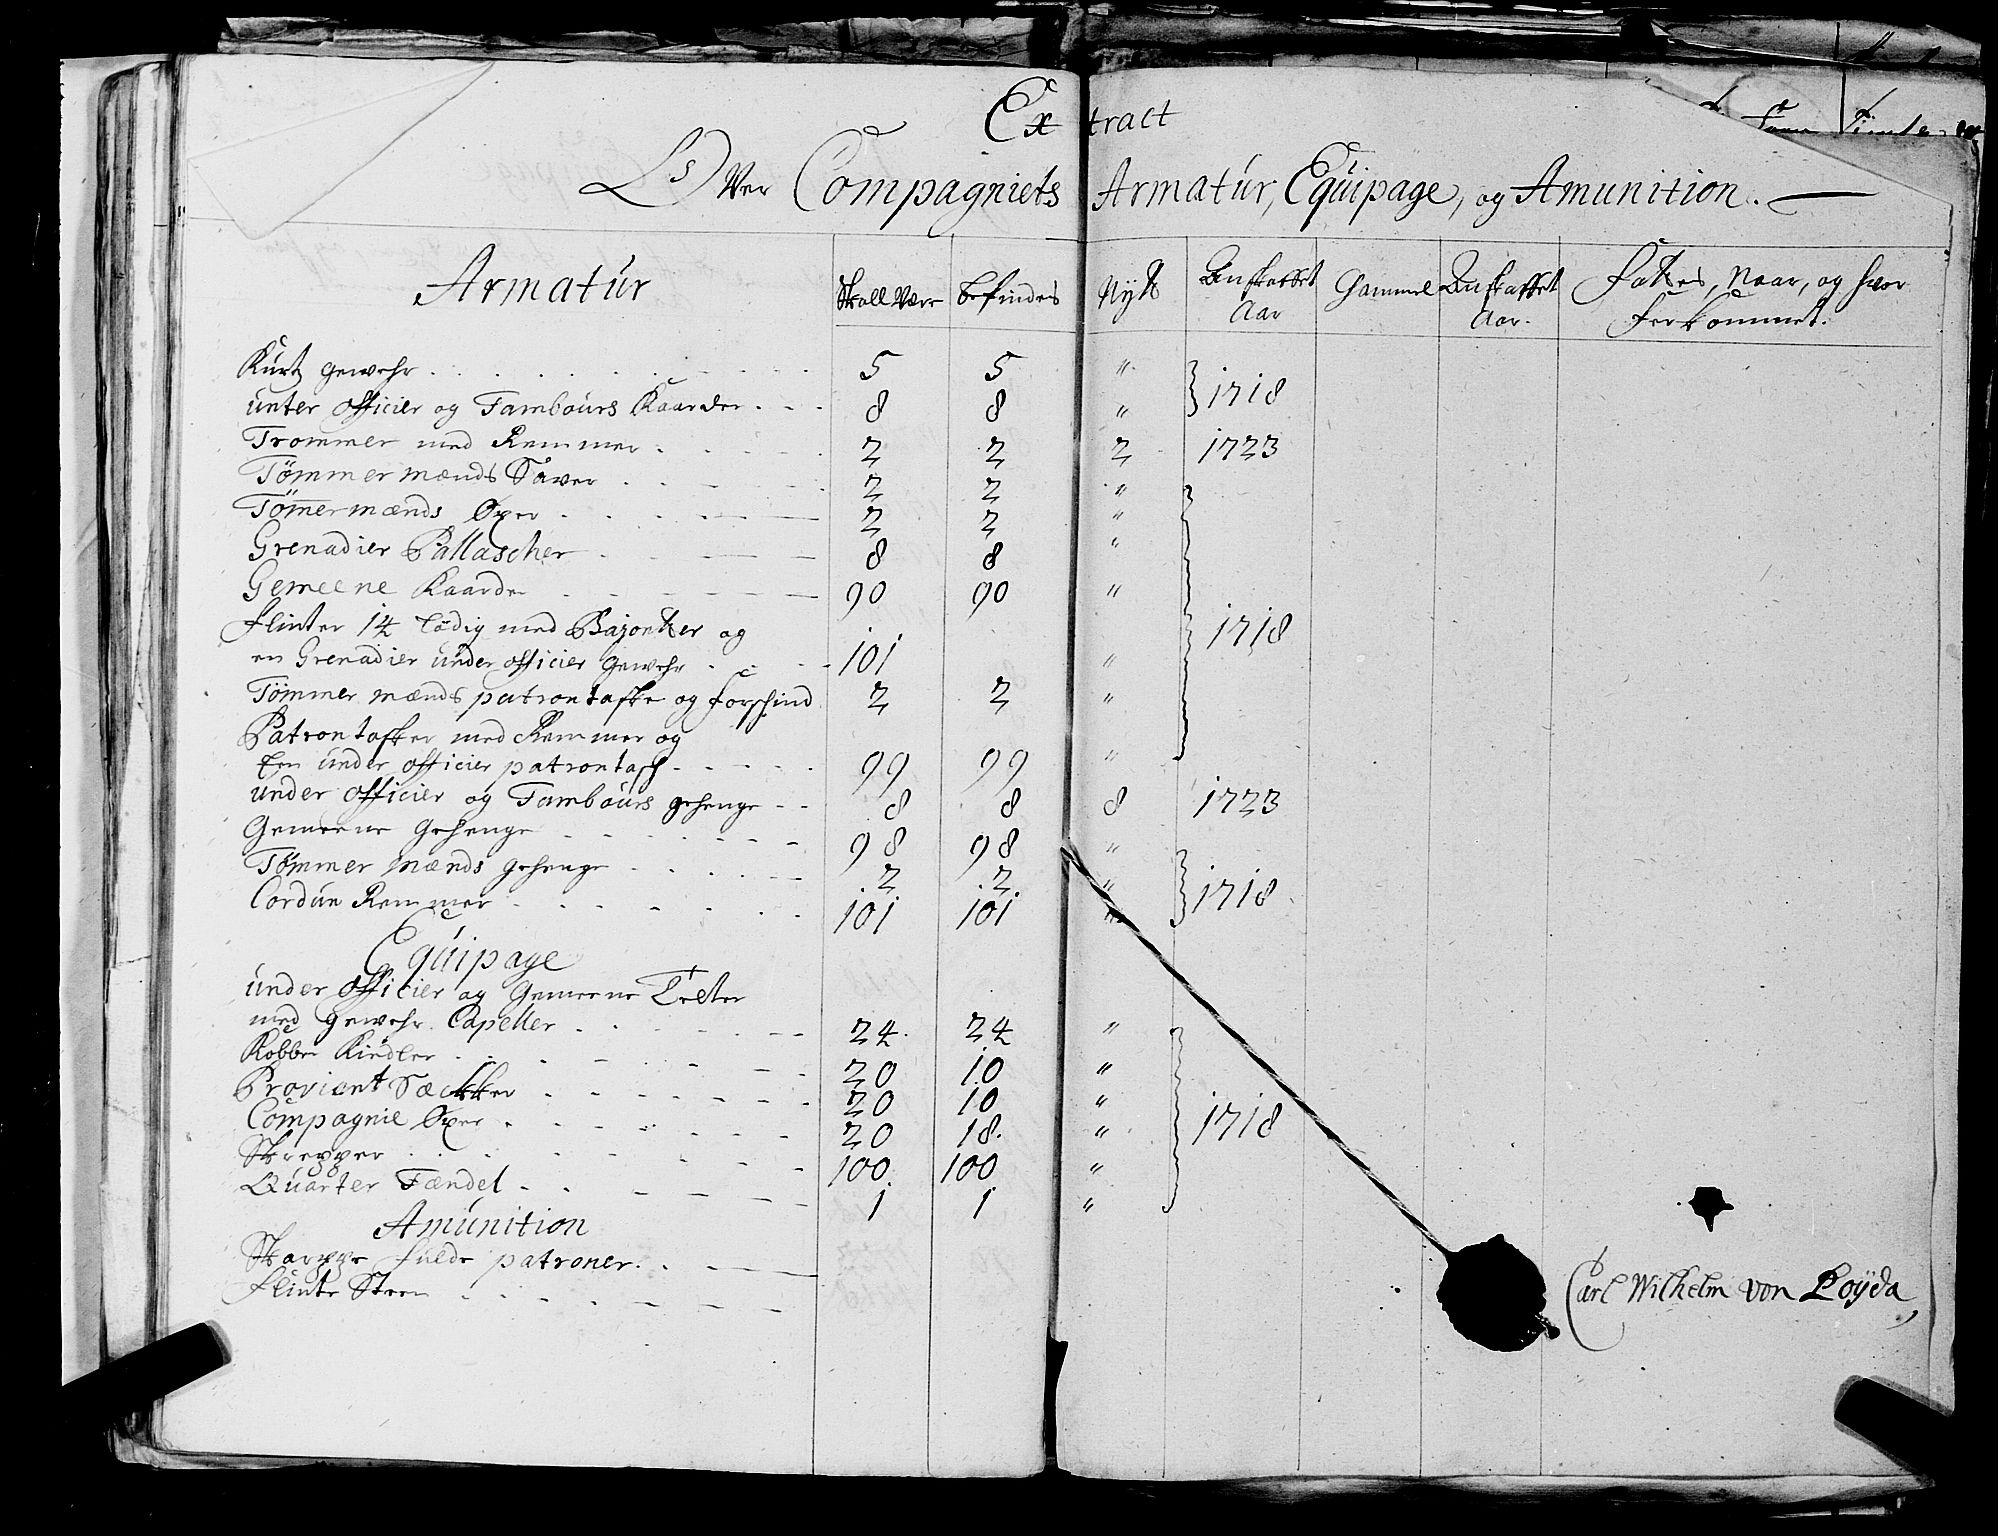 Extract
Over Compagniets Armatúr, Eqúipage, og Amunition.
Armatúr | Skall Være | befindes | Nÿtt | Anskaffet Aar | Gammel | Anskaffet Aar. | Fattes, Naar, og hvor
forkommet.
Kurtz gewehr | 5 | 5 | " | 1718
unter officier og Tamboúrs Kaarder | 8 | 8 | "
Trommer med Remmer | 2 | 2 | 2 | 1723
Tömmermænds Saver | 2 | 2 | "
Tömermænds Øxer | 2 | 2 | "
Grenadier Pallascher | 8 | 8 | "
Gemeene Kaarder | 90 | 90 | " | 1718
Flinter 14 lödig med Bajonetter og
en Grenadier únder officier gewehr | 101 | "
Tömmer mænds patrontaske og forschind | 2 | 2 | "
Patrontasker med Remmer og
Een únder officier patrontasch | 99 | 99 | "
únder officier og Tamboúrs gehenge | 8 | 8 | 8 | 1723
Gemeene gehenge | 98 | 98 | "
Tømmer mænds gehenge | 2 | 2 | " | 1718
Cordún Remmer | 101 | 101 | "
Eqúipage
únder officier og Gemeene Telter
med gewehr Capeller | 24 | 24 | "
Kobber Kiedler | 20 | 10 | "
Provient Sæckker | 20 | 10 | "
Compagnie Øxer | 20 | 18 | " | 1718
Skrepper | 100 | 100 | "
Qúarter Fændel | 1 | 1 | "
Amúnition
Skarppe fulde patroner
Flinte Steen
Carl Wilhelm von Loÿda